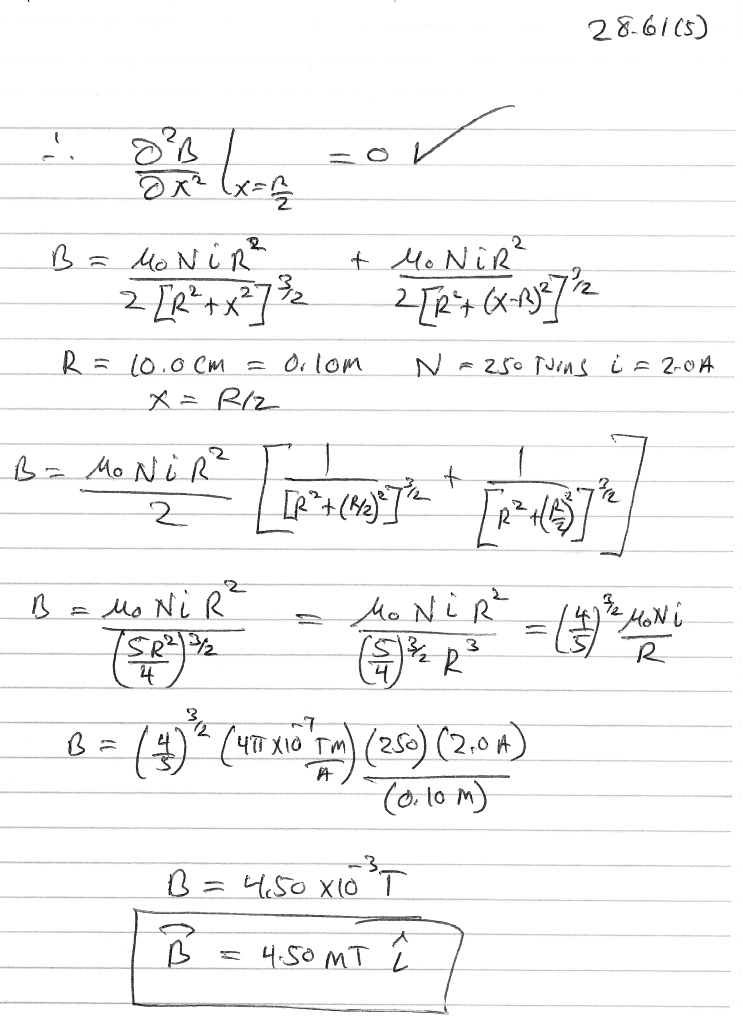 28-61(5)
∴ ∂²B/∂x² |x=R/2 = 0 ✓
B = μ₀NiR² / 2[R²+x²]^3/2 + μ₀NiR² / 2[R²+(x-R)²]^3/2
R = 10.0 cm = 0.10m N = 250 Turns i = 2.0A
x = R/2
B = μ₀NiR²/2 [ 1/[R²+(R/2)²]^3/2 + 1/[R²+(R/2)²]^3/2 ]
B = μ₀NiR²/(5R²/4)^3/2 = μ₀NiR²/((5/4)^3/2 R³) = (4/5)^3/2 μ₀Ni/R
B = (4/5)^3/2 (4π×10⁻⁷ Tm/A) (250)(2.0A)/(0.10 m)
B = 4.50 ×10⁻³ T
B⃗ = 4.50 mT î